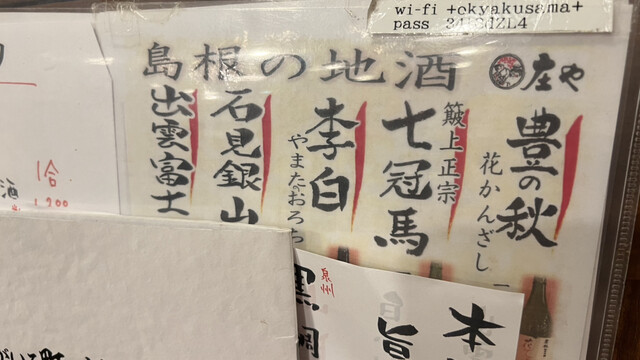 wi-fi +okyakusama+
pass
島根の地酒
庄や
豊の秋
花かんざし
簸上正宗
七冠馬
李白
やまたのおろち
石見銀山
出雲富士
1合
酒
泉州
黒
本
旨